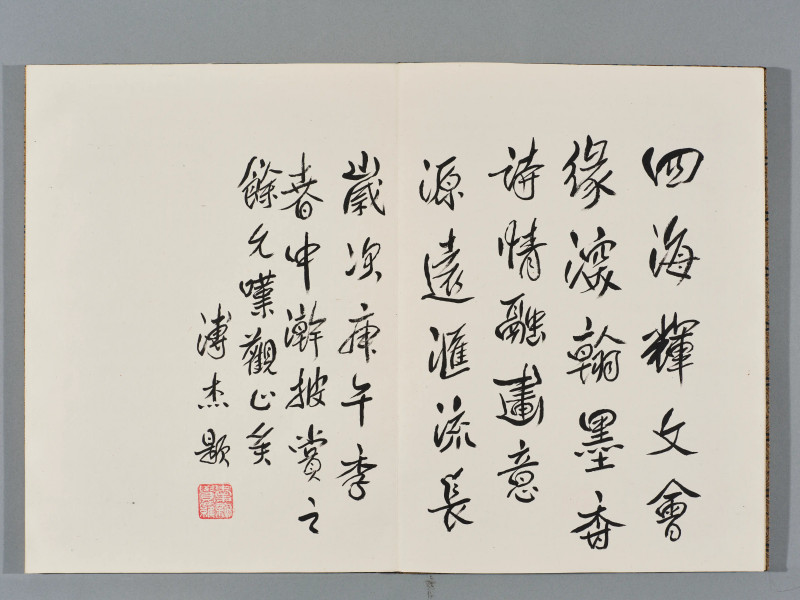 四海輝文會
緣深翰墨香
詩情融畫意
源遠滙流長
歲次庚午季
春中澣披賞之
餘允嘆觀止矣
溥杰題